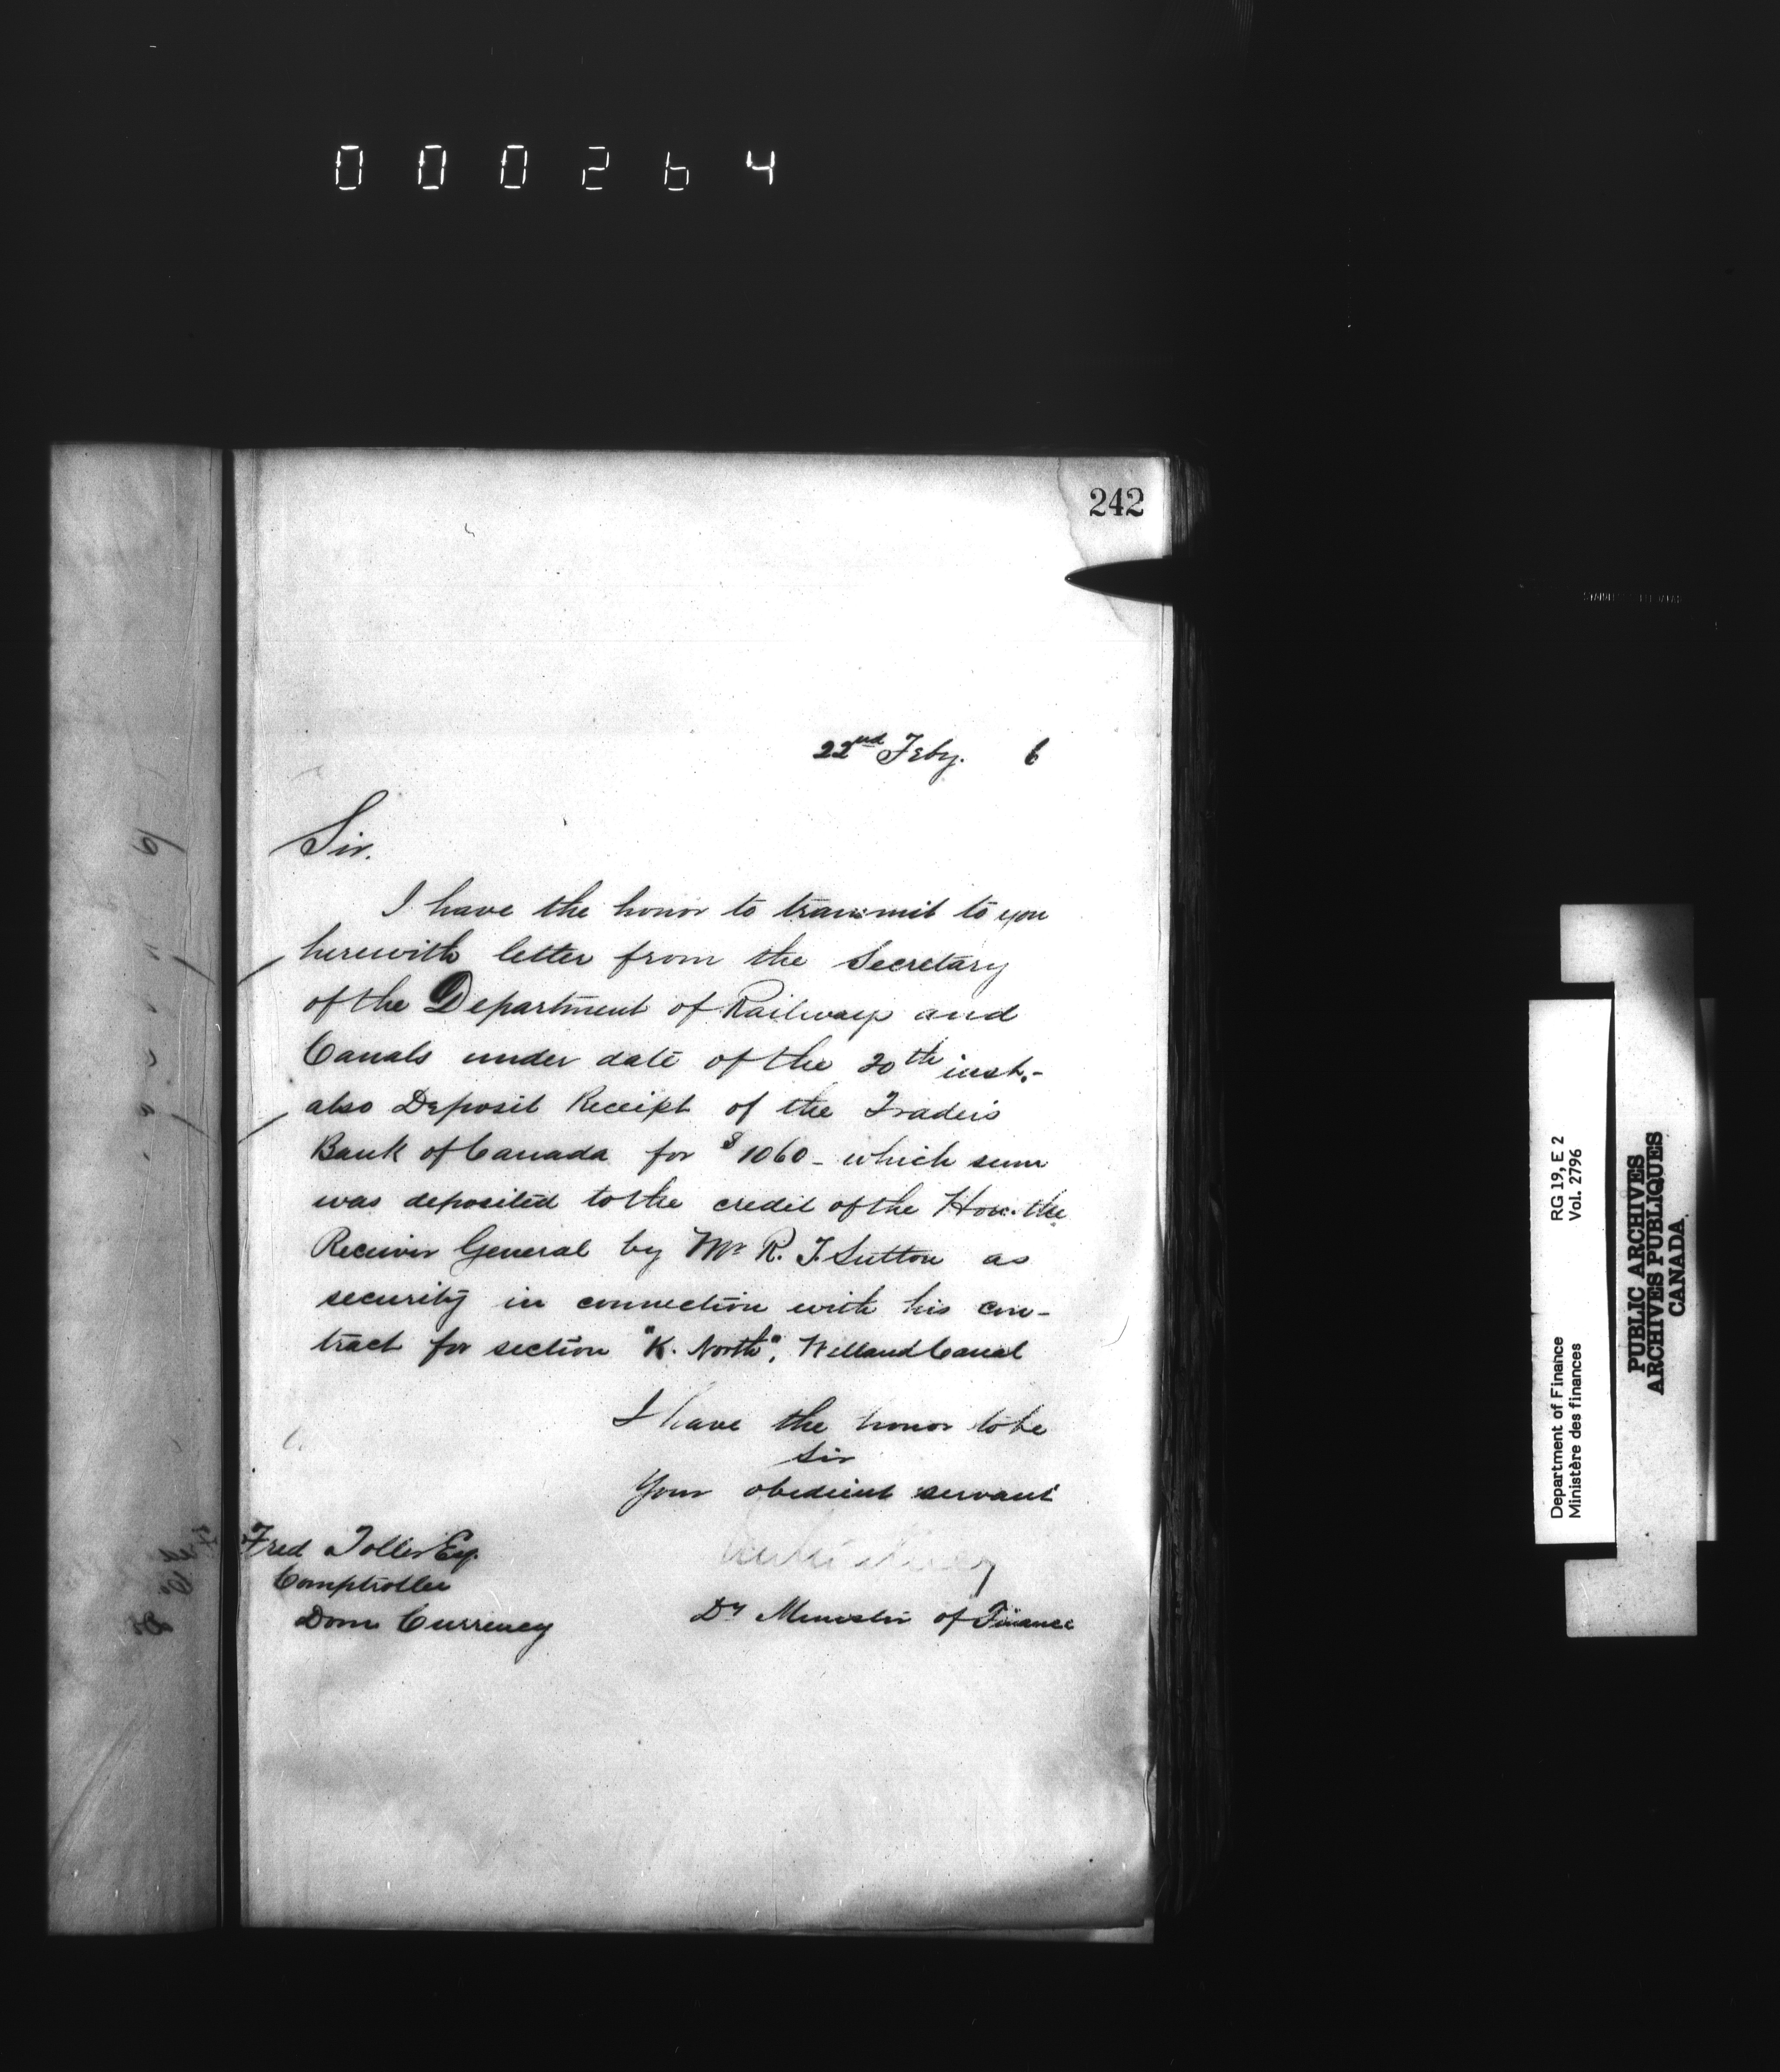 000264
242
22nd Feby. 6
Sir.
I have the honor to transmit to you
herewith letter from the Secretary
of the Department of Railways and
Canals under date of the 20th inst.-
also Deposit Receipt of the Traders
Bank of Canada for $1060- which sum
was deposited to the credit of the Hon. the
Receiver General by Mr R. T. Sutton as
security in connection with his con-
tract for section "K. North", Welland Canal
I have the honor to be
Sir
Your obedient servant
Fred Toller Esq.
Comptroller
Dom Currency
Dy Minister of Finance
Department of Finance RG 19, E 2
Ministère des finances Vol. 2796
PUBLIC ARCHIVES
ARCHIVES PUBLIQUES
CANADA